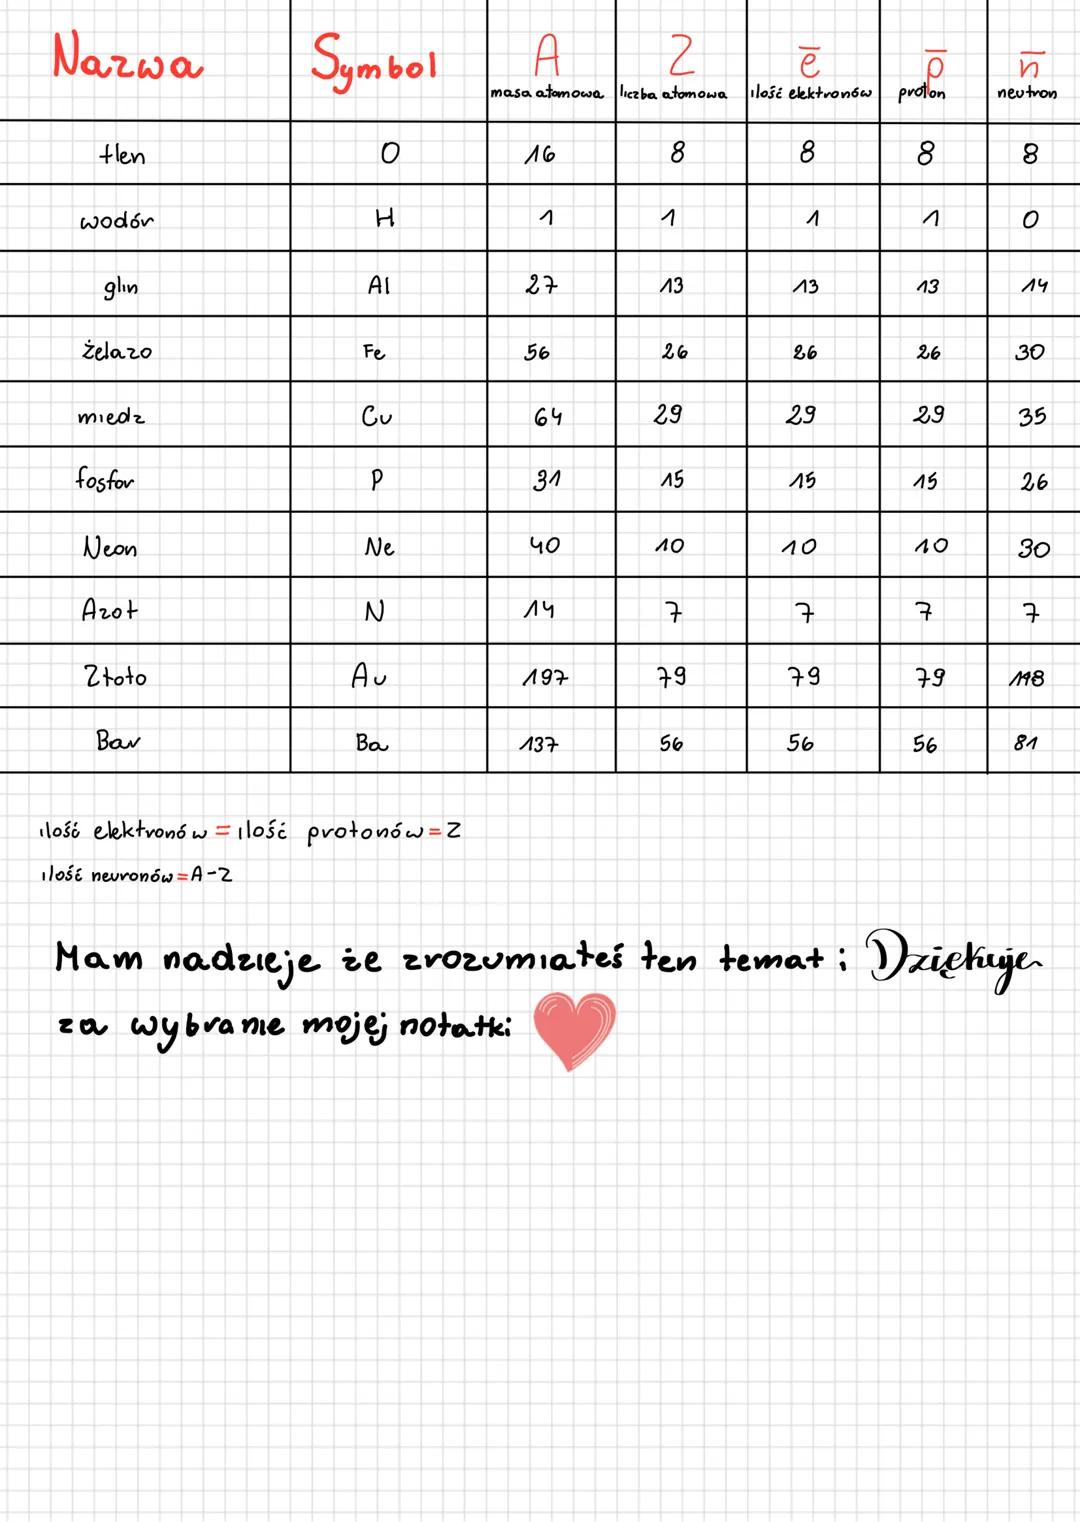 Nazwa Symbol A Z ē p̄ n̄
masa atomowa liczba atomowa ilość elektronów proton neutron
tlen O 16 8 8 8 8
wodór H 1 1 1 1 0
glin Al 27 13 13 13 14
żelazo Fe 56 26 26 26 30
miedz Cu 64 29 29 29 35
fosfor P 31 15 15 15 26
Neon Ne 40 10 10 10 30
Azot N 14 7 7 7 7
Złoto Au 197 79 79 79 118
Bar Ba 137 56 56 56 81
ilość elektronów = ilość protonów = Z
ilość neuronów = A-Z
Mam nadzieje że zrozumiałeś ten temat i Dziękuje
za wybranie mojej notatki